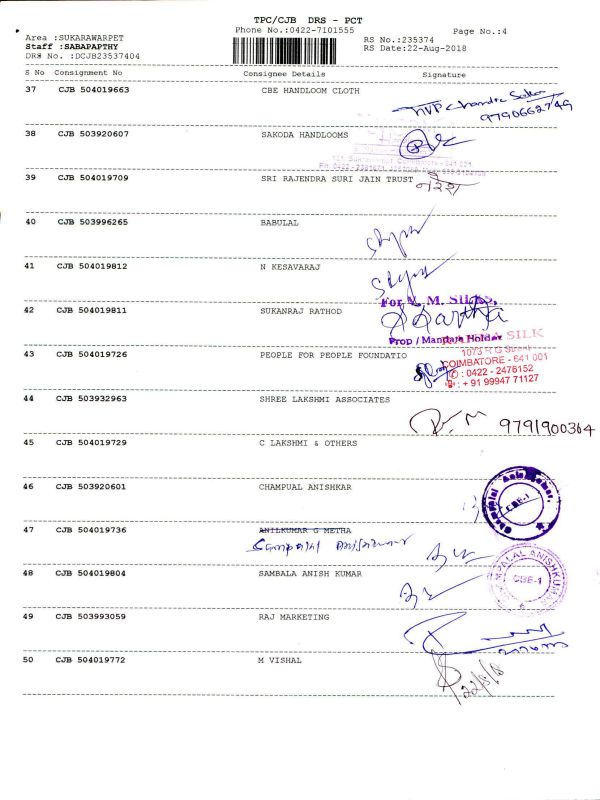 TPC/CJB DRS - PCT
Phone No.:0422-7101555
Page No.:4
Area :SUKARAWARPET
Staff :SABAPAPTHY
DRS No. :DCJB23537404
RS No.:235374
RS Date:22-Aug-2018
S No Consignment No Consignee Details Signature
37 CJB 504019663 CBE HANDLOOM CLOTH
9790662749
38 CJB 503920607 SAKODA HANDLOOMS
39 CJB 504019709 SRI RAJENDRA SURI JAIN TRUST
नरेश
40 CJB 503996265 BABULAL
41 CJB 504019812 N KESAVARAJ
42 CJB 504019811 SUKANRAJ RATHOD
For M. M. SILKS,
Prop / Manager Holder
SILK
43 CJB 504019726 PEOPLE FOR PEOPLE FOUNDATIO
1073 R G Street
COIMBATORE - 641 001
: 0422 - 2476152
: + 91 99947 71127
44 CJB 503932963 SHREE LAKSHMI ASSOCIATES
9791900364
45 CJB 504019729 C LAKSHMI & OTHERS
46 CJB 503920601 CHAMPUAL ANISHKAR
CBE-1
47 CJB 504019736 ANILKUMAR G METHA
48 CJB 504019804 SAMBALA ANISH KUMAR
CBE-1
49 CJB 503993059 RAJ MARKETING
50 CJB 504019772 M VISHAL
22/8/18